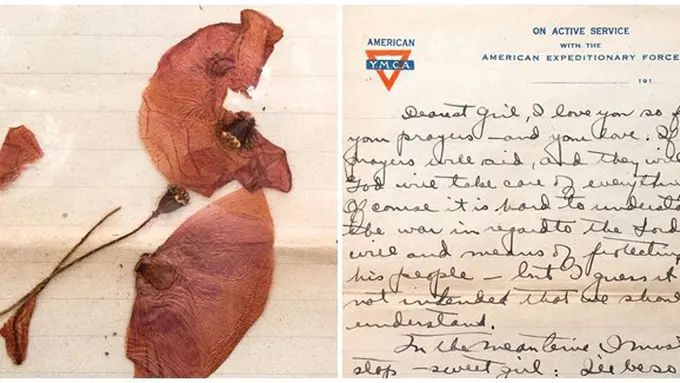 AMERICAN
Y.M.C.A
ON ACTIVE SERVICE
WITH THE
AMERICAN EXPEDITIONARY FORCE
191
Dearest Girl, I love you so f
your prayers - and your love. If
prayers will said, and they will
God will take care of everythin
Of course it is hard to understa
the war in regard to the Lord
will and means of protecting
his people - but I guess it
not intended that we shou
understand.
In the meantime I must
stop - sweet girl. I'll be so